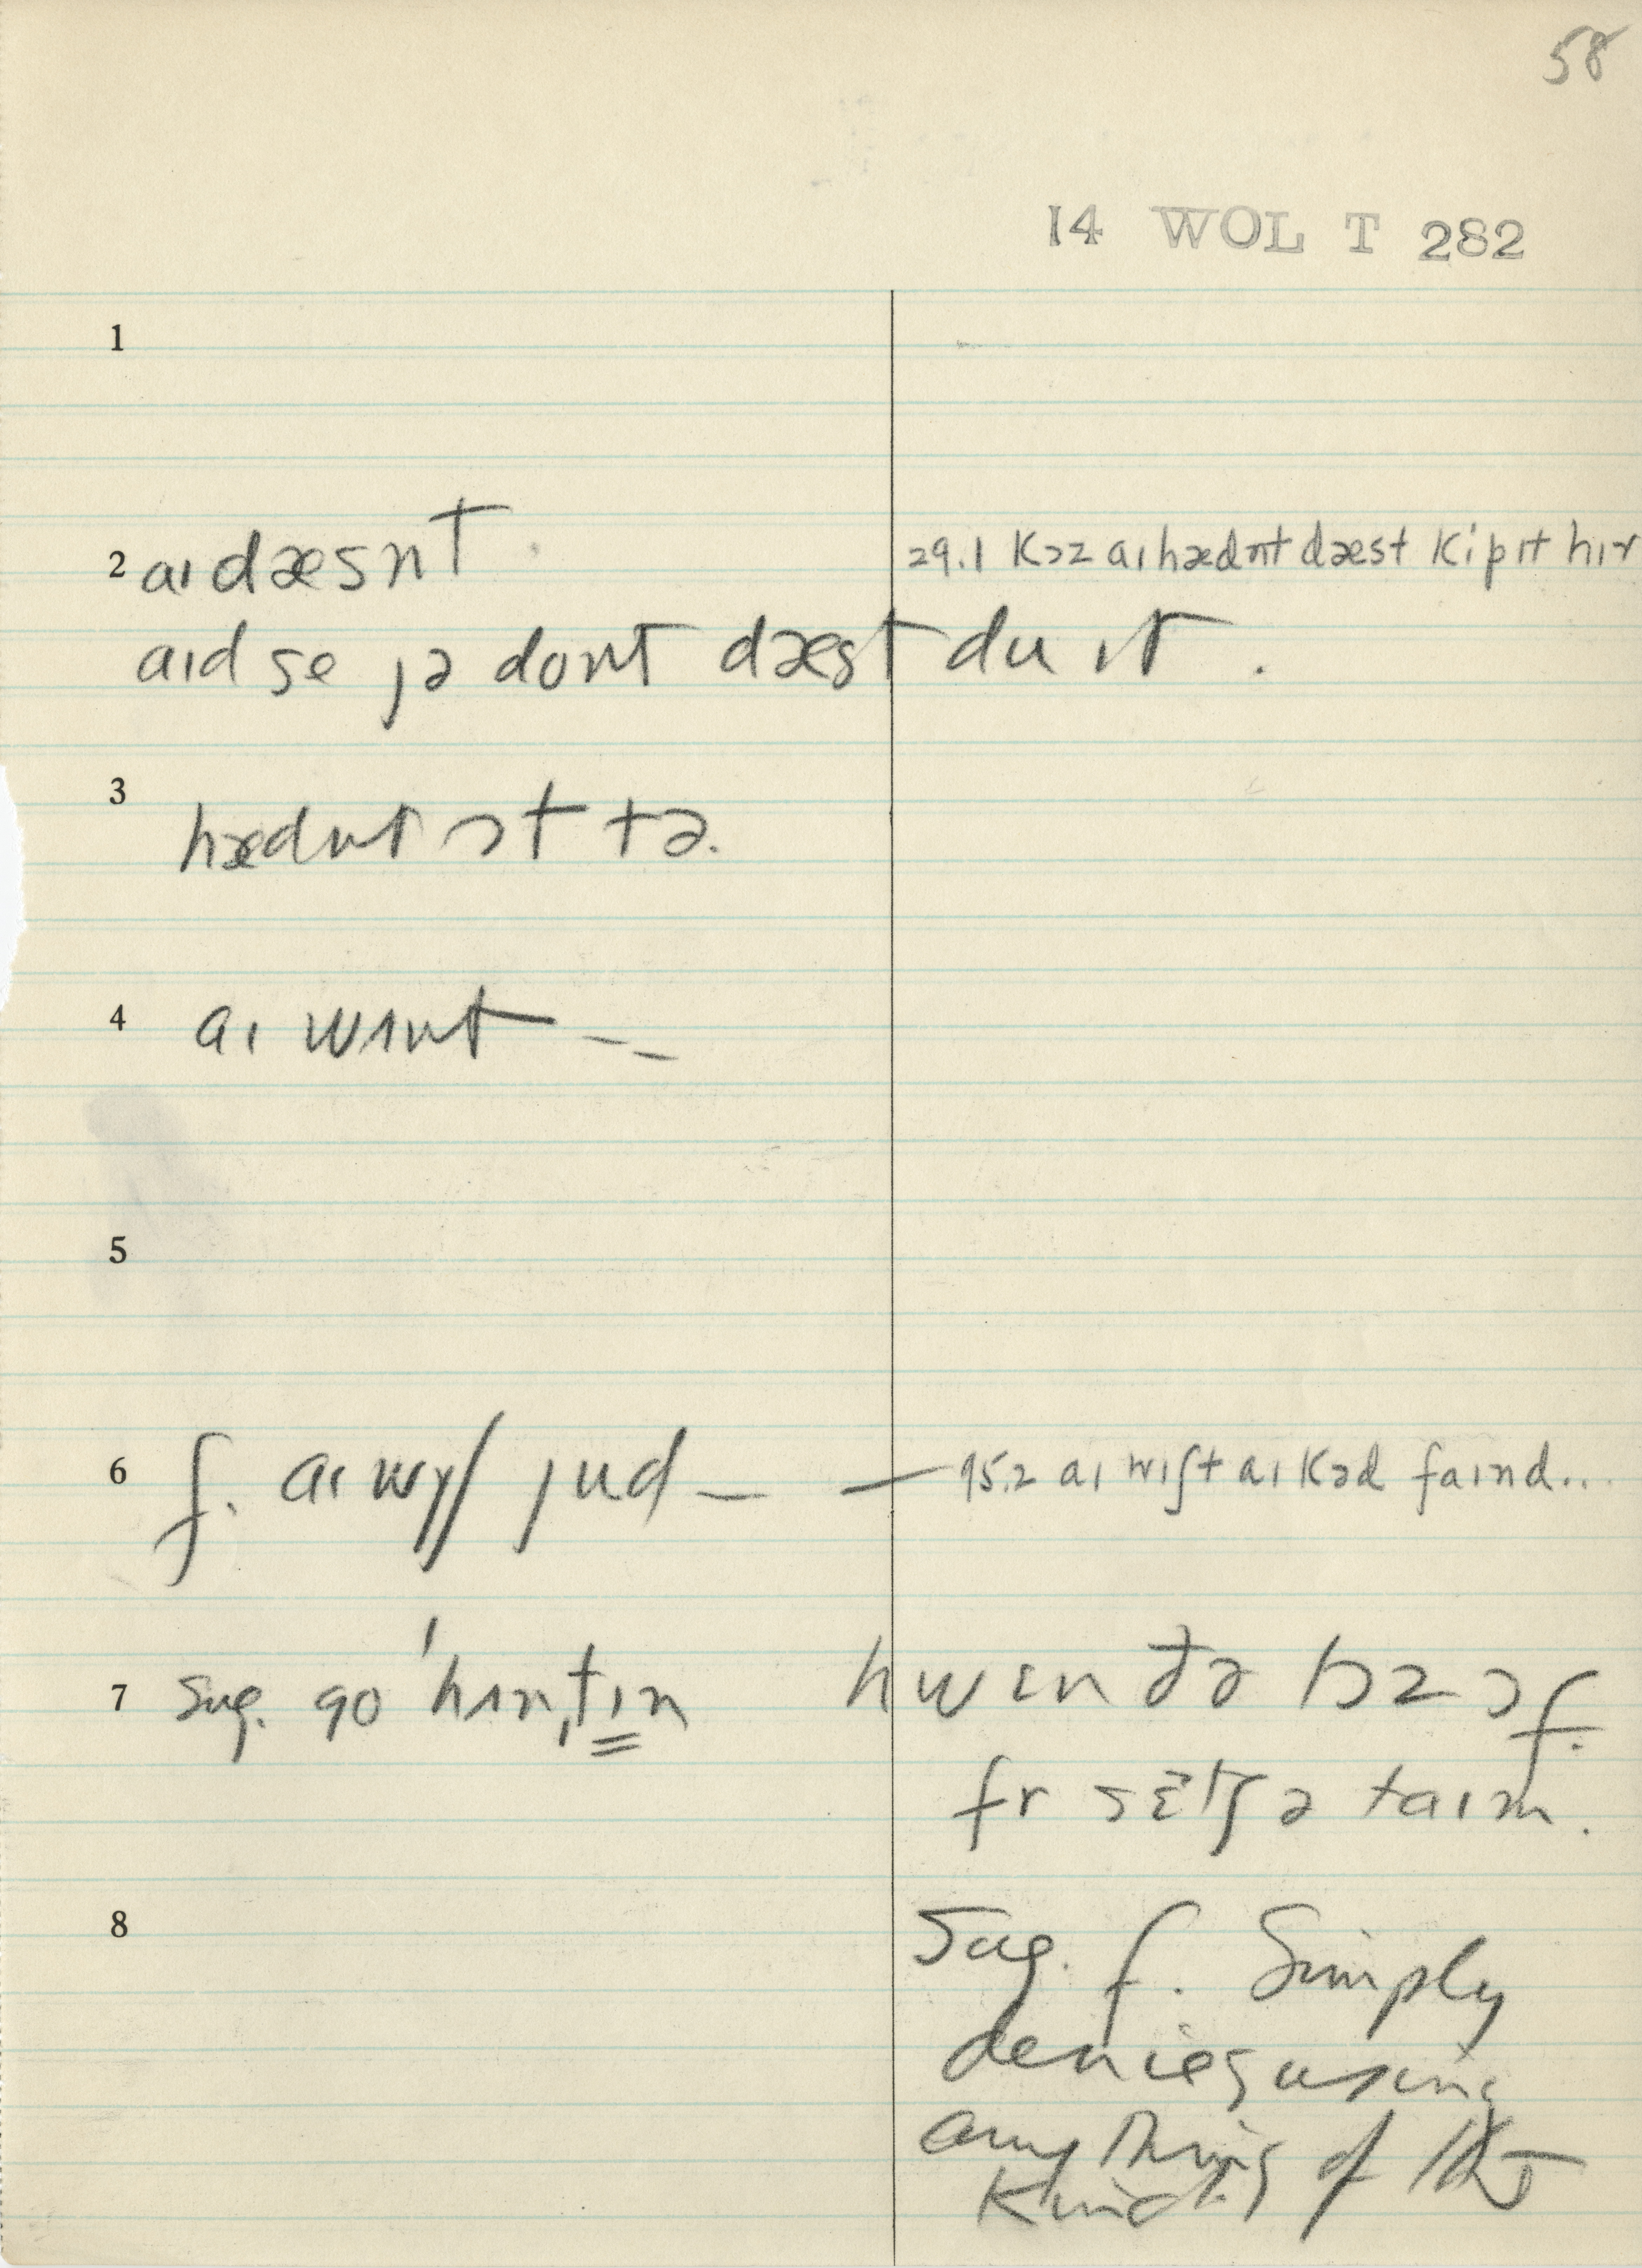 58
14 WOL T 282
1
2 aɪ dæsnt 29.1 kɔz aɪ hædnt dæst kip ɪt hɪr
aɪd se jə dont dæst du ɪt .
3 hædnt ɔt tə.
4 aɪ wɪnt --
5
6 f. aɪ wɪʃ jud — — 95.2 aɪ wɪʃt aɪ kəd faɪnd...
7 sug. go ˈhʌnˌtɪn hwɛn ðə bɔz ɔf.
fr sɛtʃ ə taɪm.
8 Sug. f. Simply
denies using
anything of this
kind.